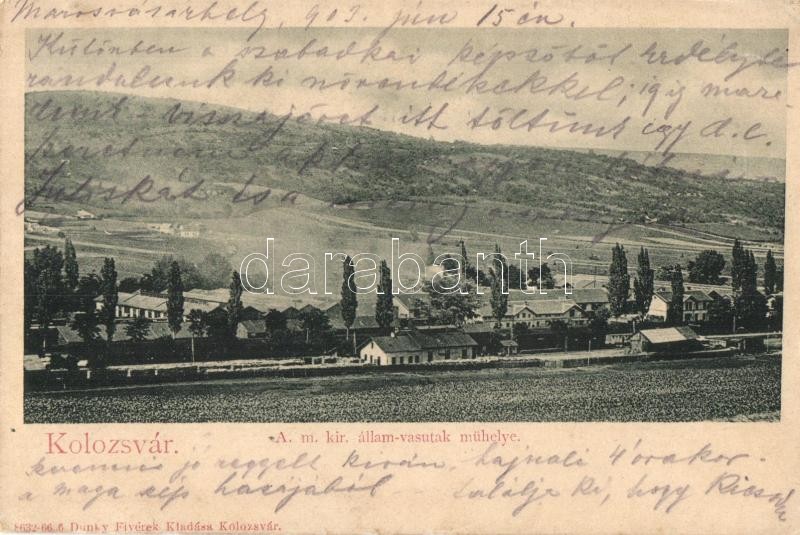 Marosvásárhely, 903. jún 15én.
Különben a szabadkai képzőből Erdélybe
rándulunk ki növendékekkel;
visszajövet itt töltünk egy d. e.
Juliskát és a
darabanth
Kolozsvár.
A. m. kir. állam-vasutak műhelye.
jó reggelt kíván, hajnali 4 órakor
a maga szép hazájából – találja ki, hogy
8632-66 6 Dunky Fivérek Kiadása Kolozsvár.